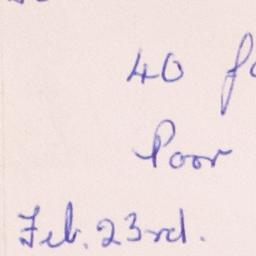 40
Poor
Feb. 23rd.